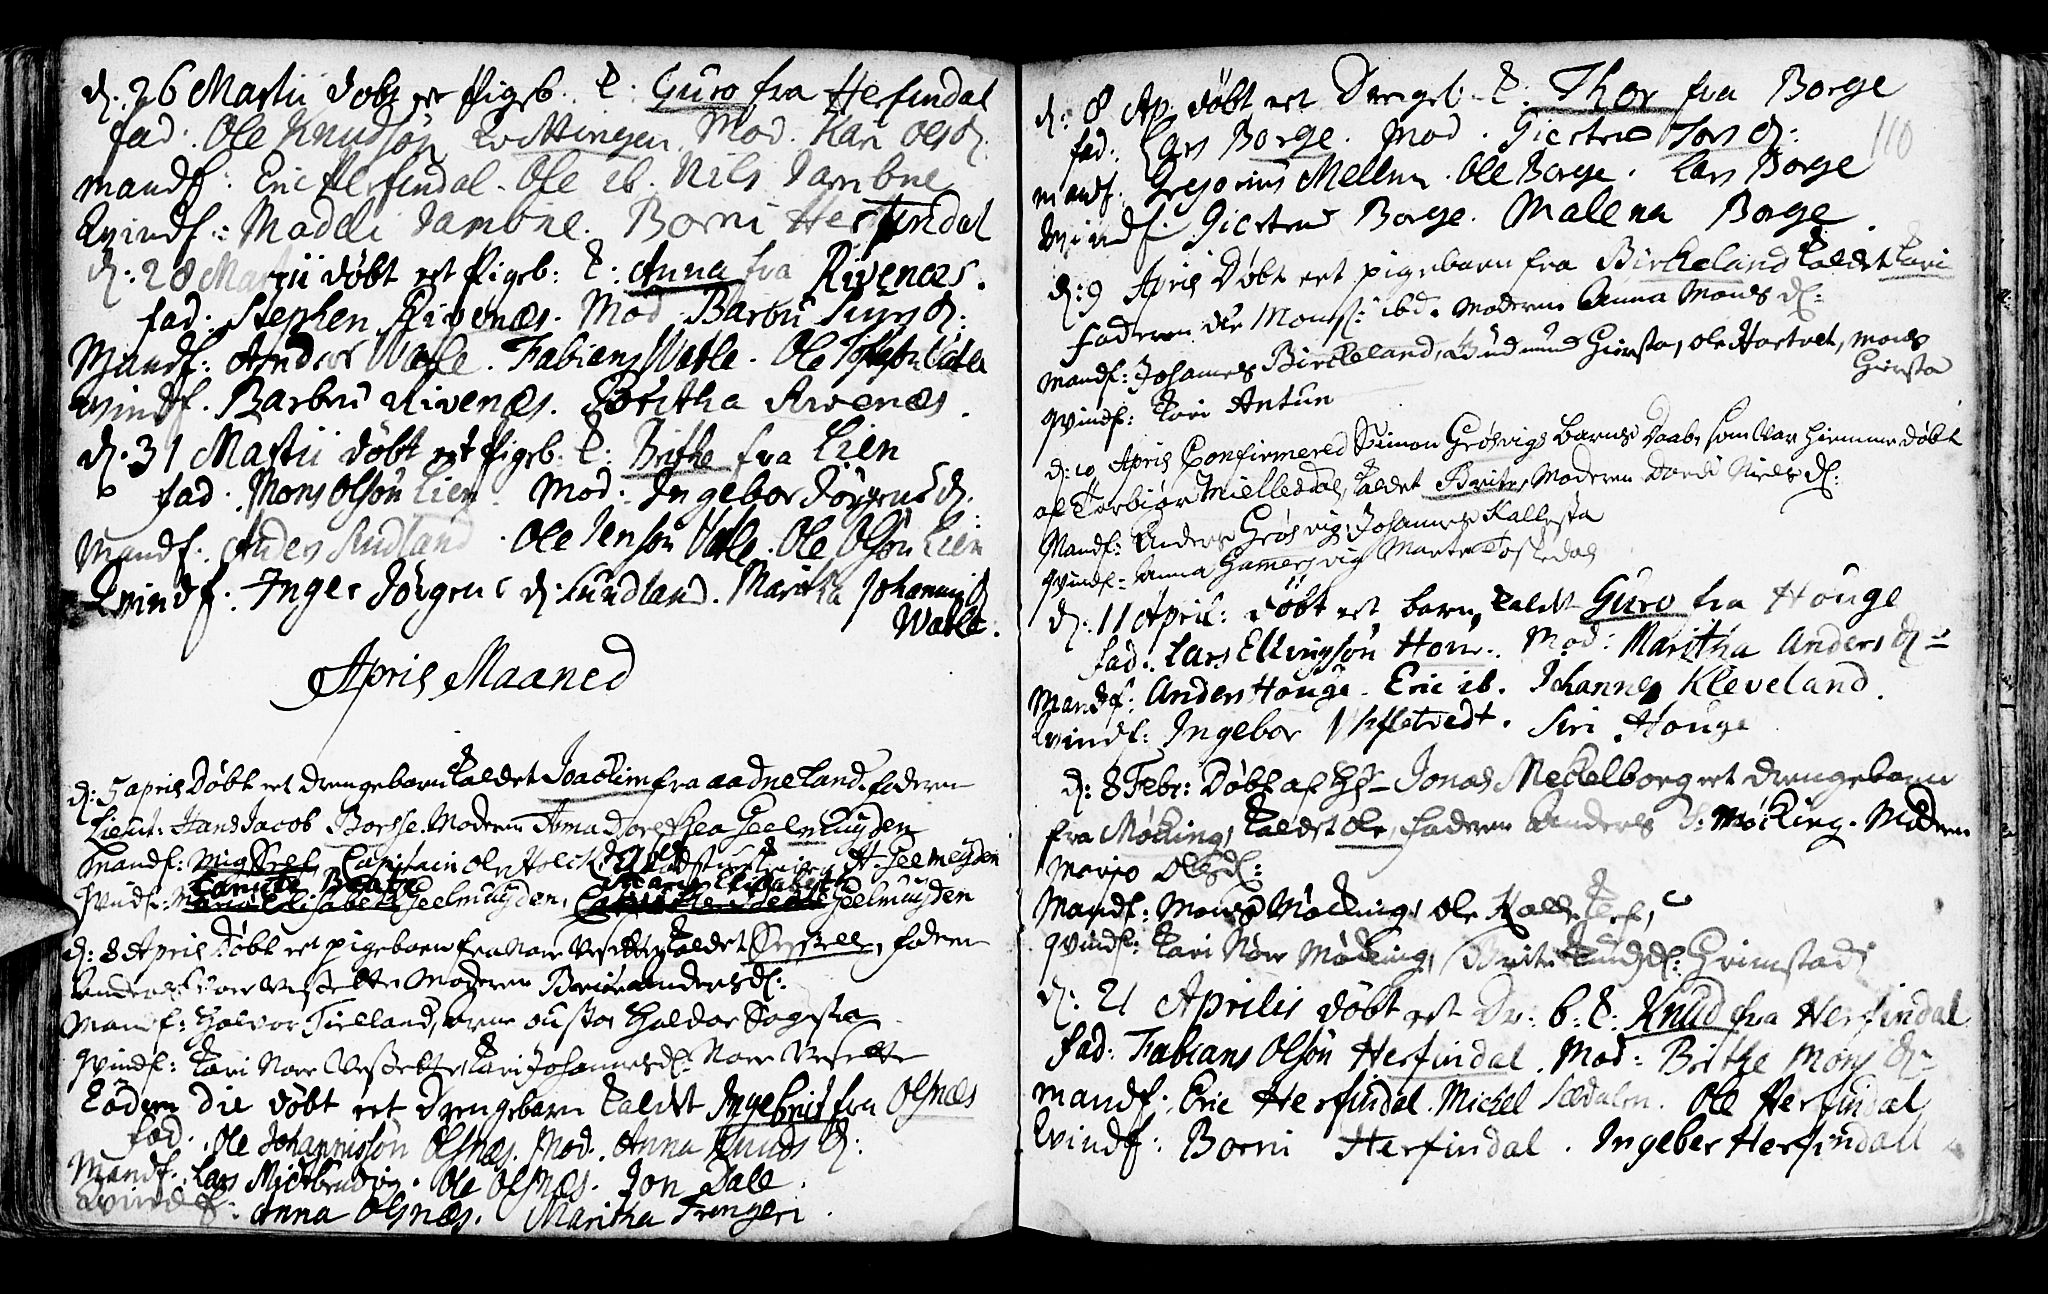 d. 26 Martii døbt et Pigeb. K: Guro fra Herfindal
fad: Ole Knudsøn Mod. Kari Ols d.
mandf: Eric Herfindal. Ole ib. Nils Jambne
Kvindf:: Madeli Jambne. Borni Herfindal
d: 28 Martii døbt et Pigeb: K: Anna fra Rivenæs.
fad: Stephen Rivenæs. Mod Barbru d:
Mandf: Anders Watle. Fabians Watle. Ole Watle
Kvindf. Barbru Rivenæs. Britha Rivenæs.
d. 31 Martii døbt et Pigeb. K: Brithe fra Lien
fad. Mons Olsøn Lien. Mod: Ingebor Jørgens d.
Mandf: Anders Sundland. Ole Jensøn Watle. Ole Olsøn Lien
Kvindf: Inger Jørgens d: Sundland. Maritha Johannis d
Watle.
April Maaned
d: 5 april Døbt et drengebarn Kaldet Joachim fra Aadneland. faderen
Lieut: Hans Jacob Borsse. Moderen Anna Dorethea Geelmuyden
Mandf: Capitain Ole Holck H. Geelmeyden
qvindf: Maria Elisabeth Geelmuyden, Geelmuyden
d: 8 April Døbt et pigebarn fra Kaldet faderen
Anders Moderen Brite Anders d:
Mandf: Halvor Tielland, Arne Haldor Sogsta
qvindf: Kari Kari Johannes d:
Eodem die døbt et Drengebarn Kaldet Ingebrit fra Olsnæs
fad. Ole Johannissøn Olsnæs. Mod. Anna Knuds d:
Mandf. Lars Ole Olsnæs. Jon Dale.
Kvindf: Anna Olsnæs. Maritha Trengeri.
110
d: 8 Ap. døbt et Drengeb. K: Thor fra Borge
fad: Lars Borge. Mod. Giertrud Lars d:
mandf: Gregorius Mellum. Ole Borge. Lars Borge
Kvindf. Giertrud Borge. Malena Borge.
d: 9 April Døbt et pigebarn fra Birkeland Kaldet Kari
Faderen Ole Mons S: ibd. Moderen Anna Mons d:
Mandf: Johannes Birckeland, Gudmund Giersta, Ole Hartvet, Mons
Giersta
qvindf: Kari Antun
d: 10 April Confirmered Simon Grøsvigs barns Daab, som var hiemme døbt
af Torbiør Mielledal, Kaldet Brite, Moderen Dordi Niels d:
Mandf: Anders Grøsvig, Johannes Kallesta
qvindf: Anna Hamersvig Marte Tostedal
d: 11 April: døbt et barn, Kaldt Guro fra Houge
fad: Lars Ellingsøn Houg. Mod: Maritha Anders d:
Mandf: Anders Houge. Eric ib. Johannes Kleveland.
Kvindf: Ingebor Siri Houge
d: 8 Febr: Døbt af Hr Jonas Meckelborg et drengebarn
fra Møcking, Kaldet Ole, faderen Anders S: Møcking. Moderen
Maryo Ols d:
Mandf: Mons Møcking, Ole Kalleklef,
qvindf: Kari Nore Møcking, Brite Knuds d: Grimstad
d: 21 Aprilis døbt et Dr: b: K: Knud fra Herfindal
fad: Fabians Olsøn Herfindal. Mod: Brithe Mons d:
mandf: Eric Herfindal. Michel Sædalen. Ole Herfindal
Kvindf: Borni Herfindal. Ingebor Herfindall